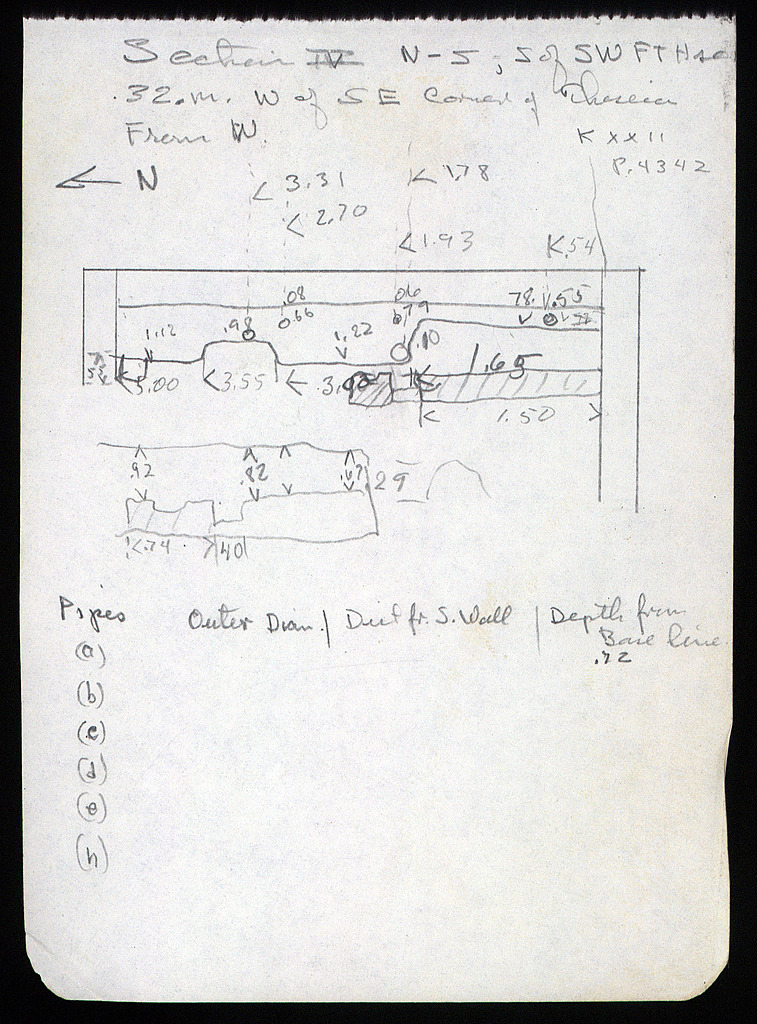 Section IV N-S, S of SW FTHse
.32.m. W of SE Corner of
From W.
K xx II
P. 4342
← N
< 3.31
< 1.78
< 2.70
< 1.93
< .54
.08
.06
78.
1.55
1.12
.98
0.66
1.22
.10
< 5.00
< 3.55
1.65
1.50
.92
.82
.67
.29
< .74
.40
Pipes
Outer Diam. | Dist fr. S. Wall | Depth from
Base line
.72
(a)
(b)
(c)
(d)
(e)
(h)